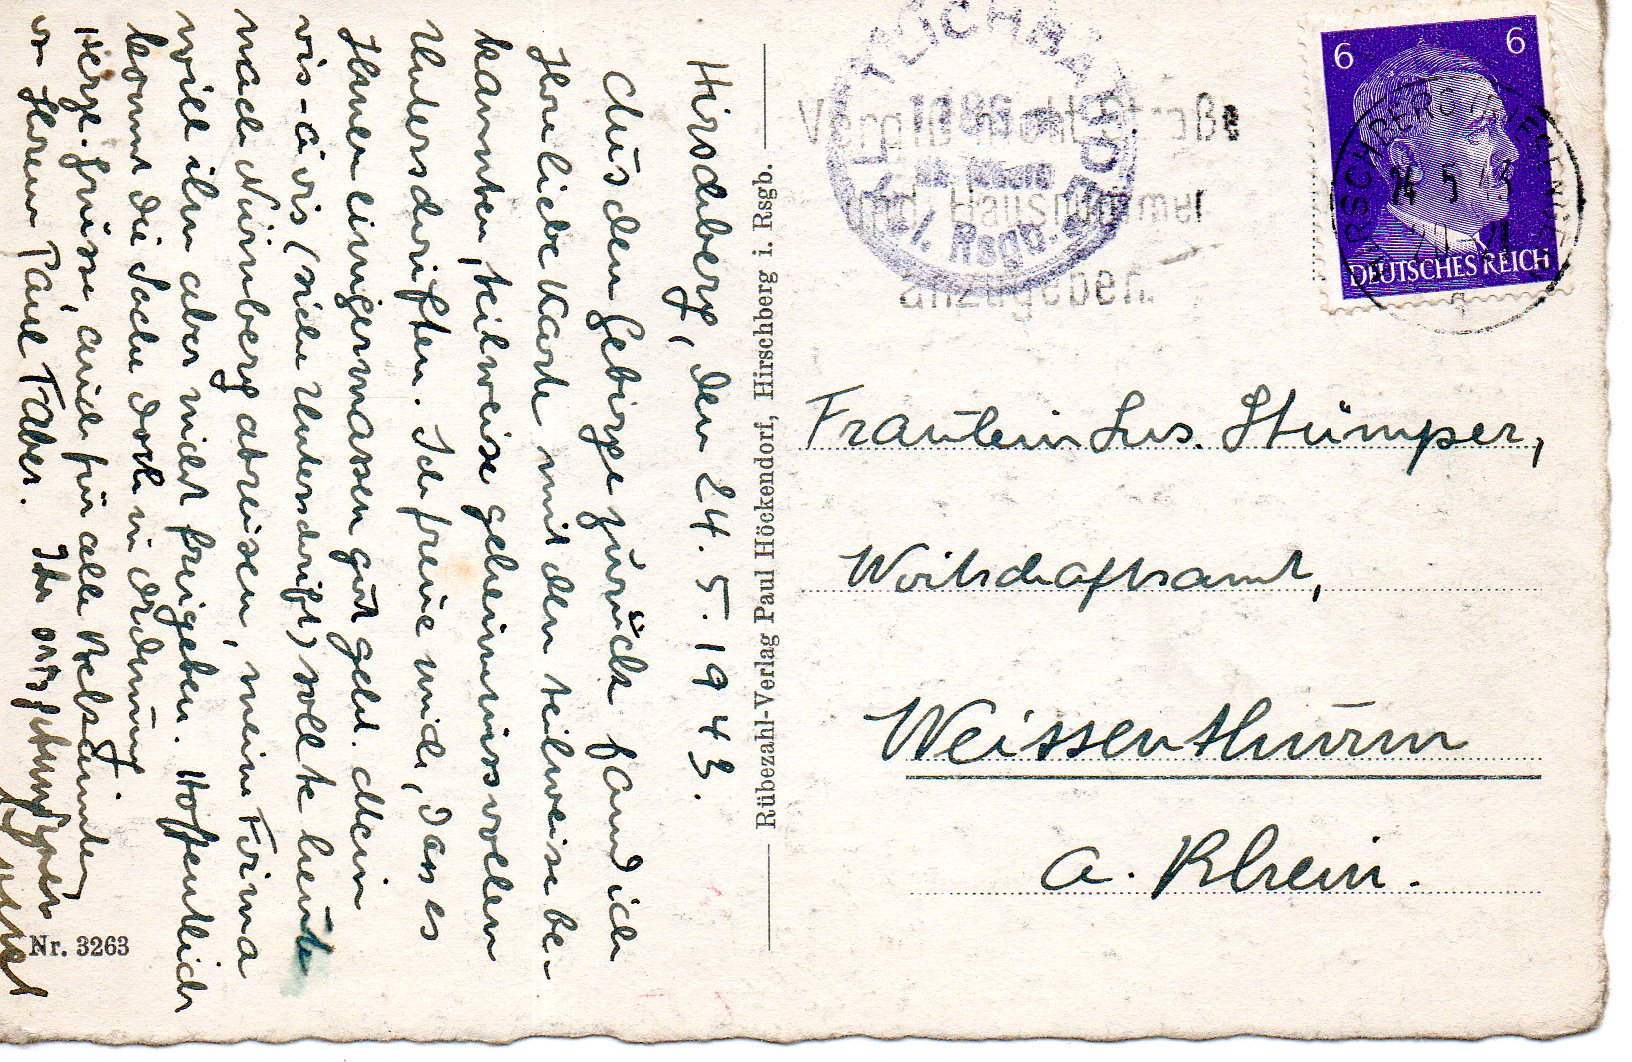 Hirschberg, den 24.5.1943.
Aus dem Gebirge zurück fand ich
Ihre liebe Karte mit den teilweise be-
kannten, teilweise geheimnisvollen
Unterschriften. Ich freue mich, dass es
Ihnen einigermassen gut geht. Mein
vis-à-vis (siehe Unterschrift) sollte heute
nach Nürnberg abreisen, meine Firma
will ihn aber nicht freigeben. Hoffentlich
kommt die Sache dort in Ordnung
Herzl. Grüsse, auch für alle Bekannten
u. Herrn Paul Faber. Ihr
Nr. 3263
Rübezahl-Verlag Paul Höckendorf, Hirschberg i. Rsgb.
TEICHMANNBAUDE
1286 m
ü. d. Meere
i. Rsgb.
Vergiß nicht Straße
und Hausnummer
anzugeben.
6 6
DEUTSCHES REICH
HIRSCHBERG (RIESENGEB)
24.5.43
Fräulein Lus. Stümper,
Wirtschaftsamt,
Weissenthurm
a. Rhein.